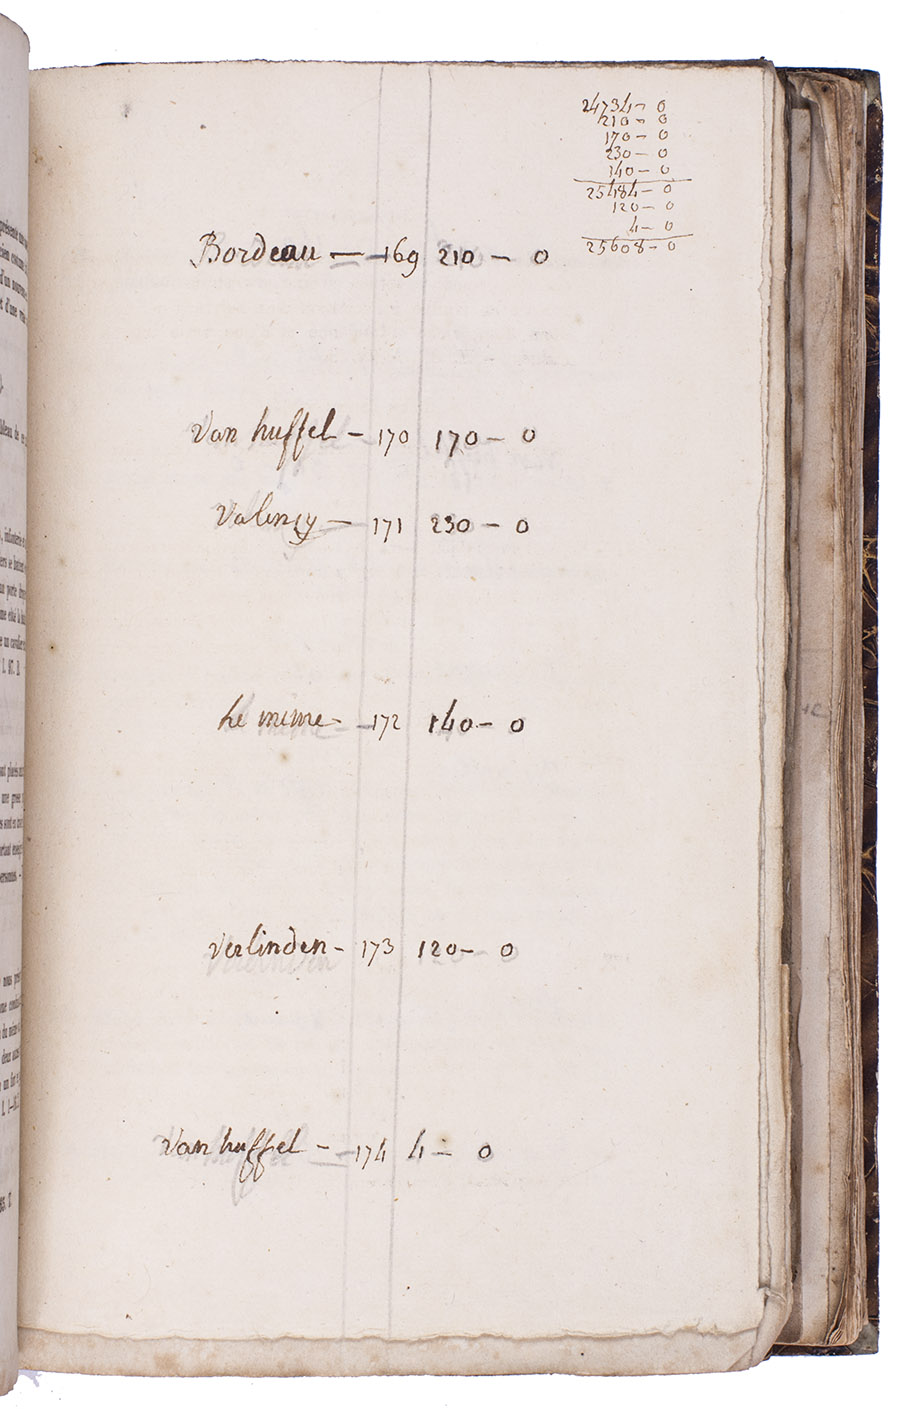 24734 - 0
210 - 0
170 - 0
230 - 0
140 - 0
25484 - 0
120 - 0
4 - 0
25608 - 0
Bordeau — 169 210 — 0
Van huffel — 170 170 — 0
Valency — 171 230 — 0
Le même - 172 140 — 0
Verlinden - 173 120 — 0
Van huffel — 174 4 — 0